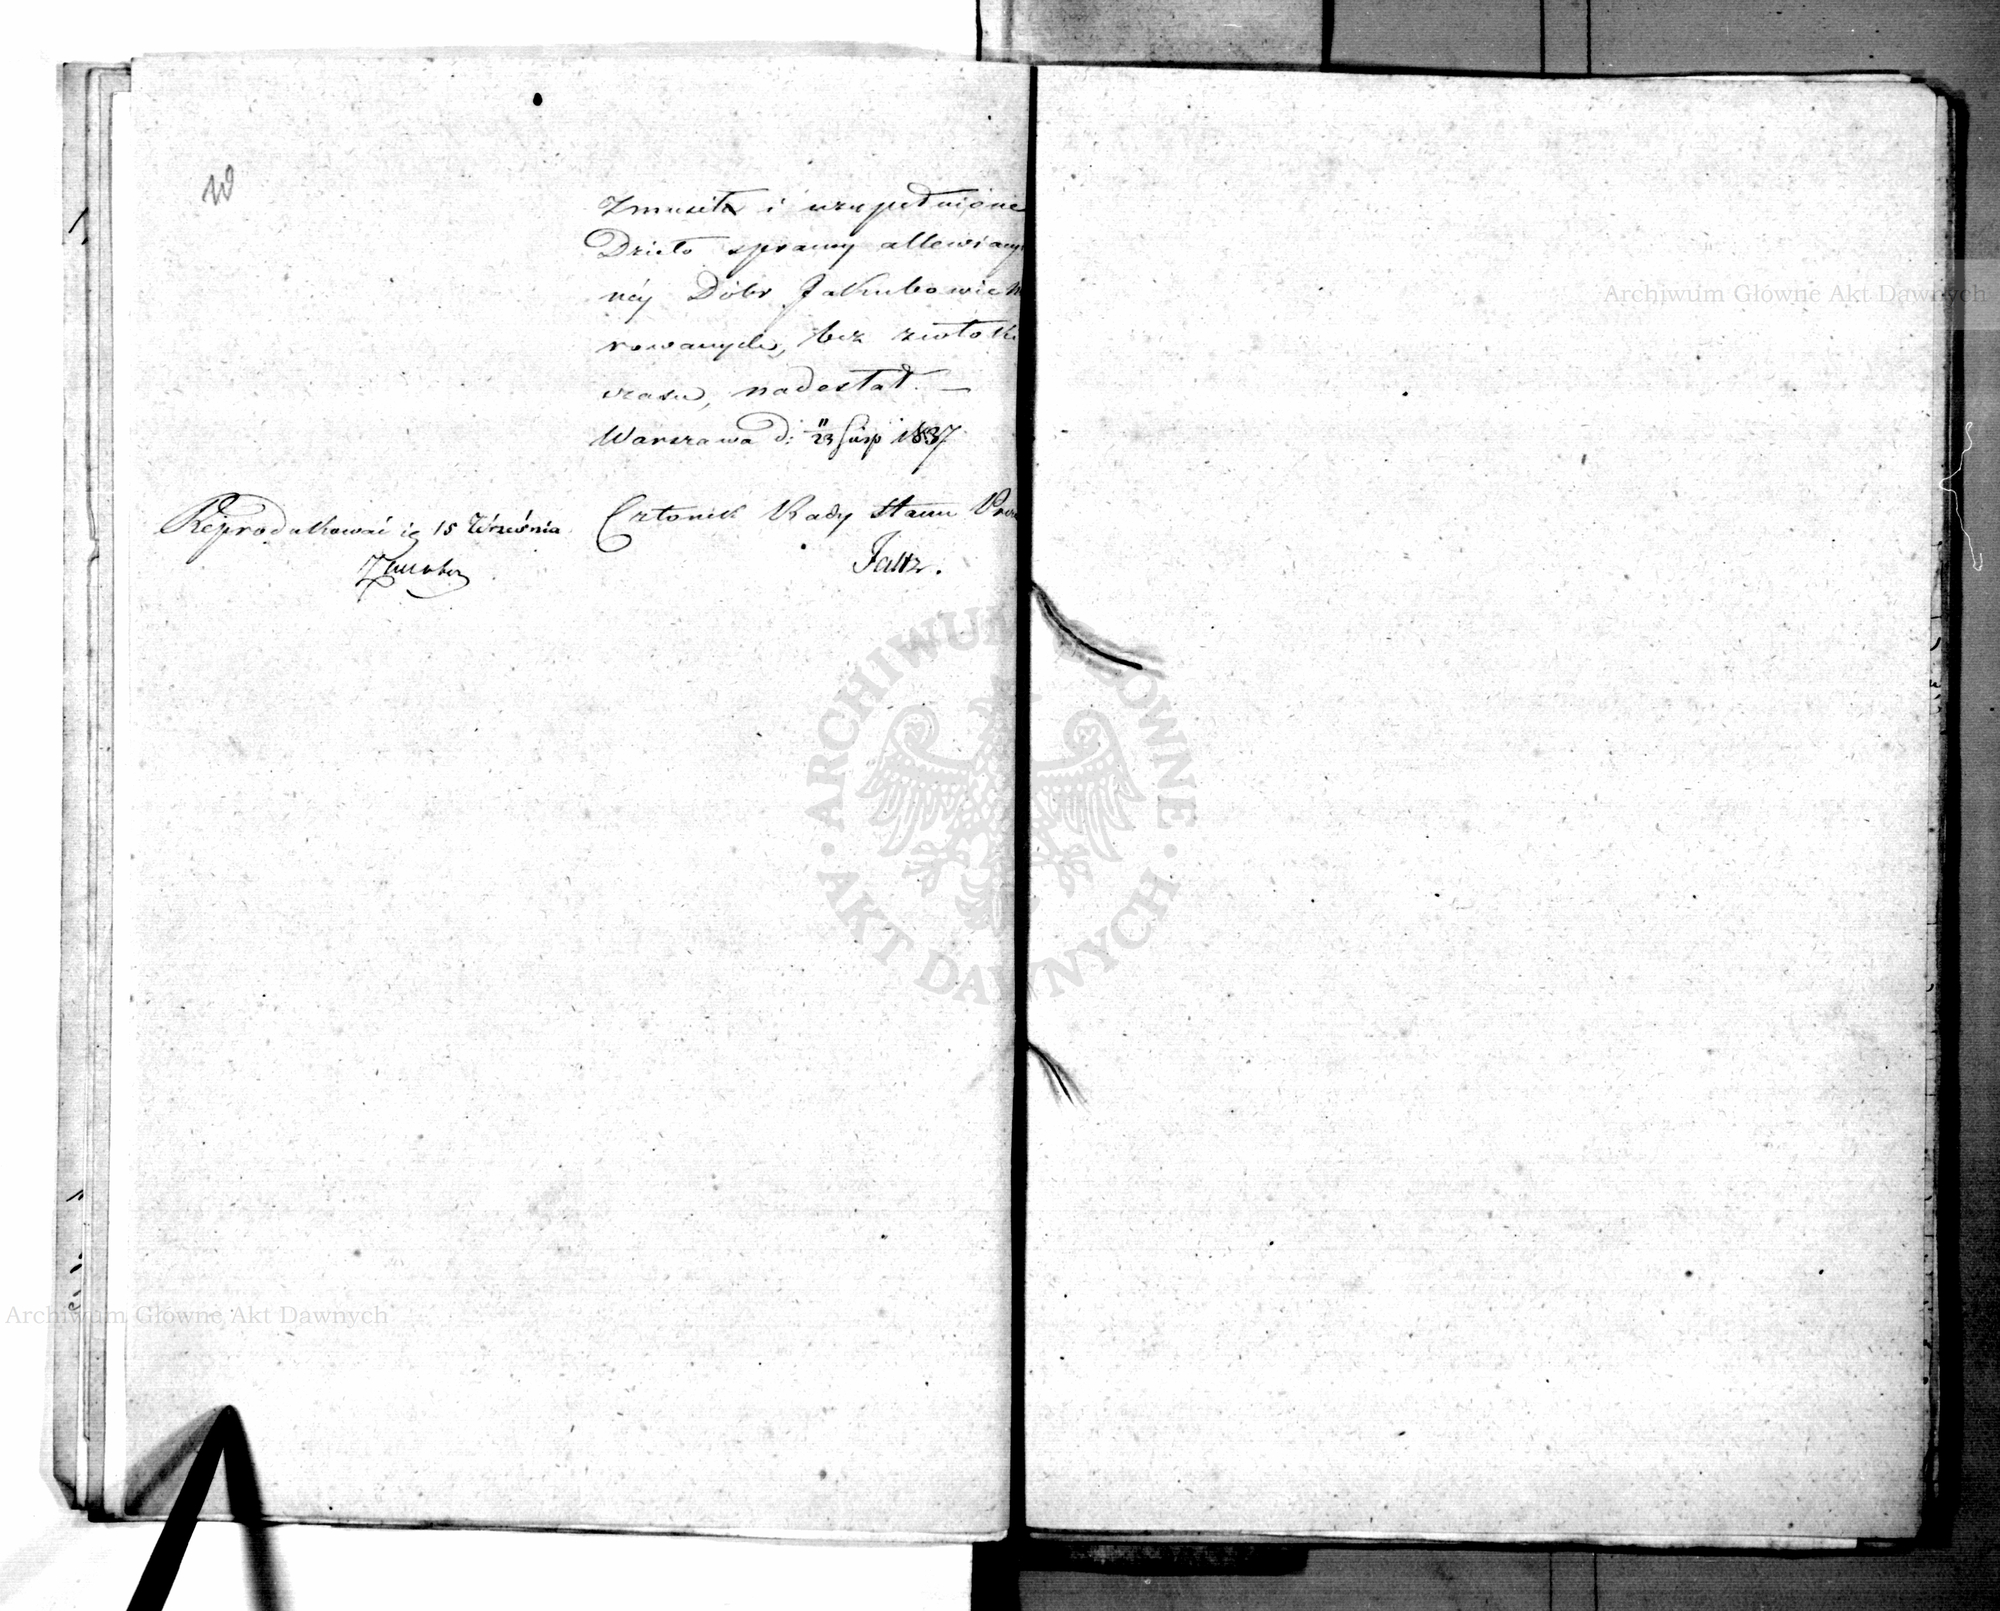 Zmusił i uzupełnione
Dzieło sprawy allewiacyi
néy Dóbr Jakubowic
rowanych, bez zwłoki
czasu, nadesłał. —
Warszawa d: 11/23 Sierp 1837
Członek Rady Stanu
Faltz.
Reprodukować ię 15 Września
Archiwum Główne Akt Dawnych
Archiwum Główne Akt Dawnych
ARCHIWUM GŁÓWNE
AKT DAWNYCH